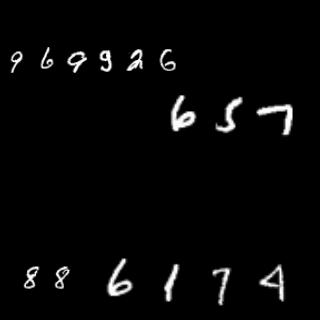 969926
657
88 6174